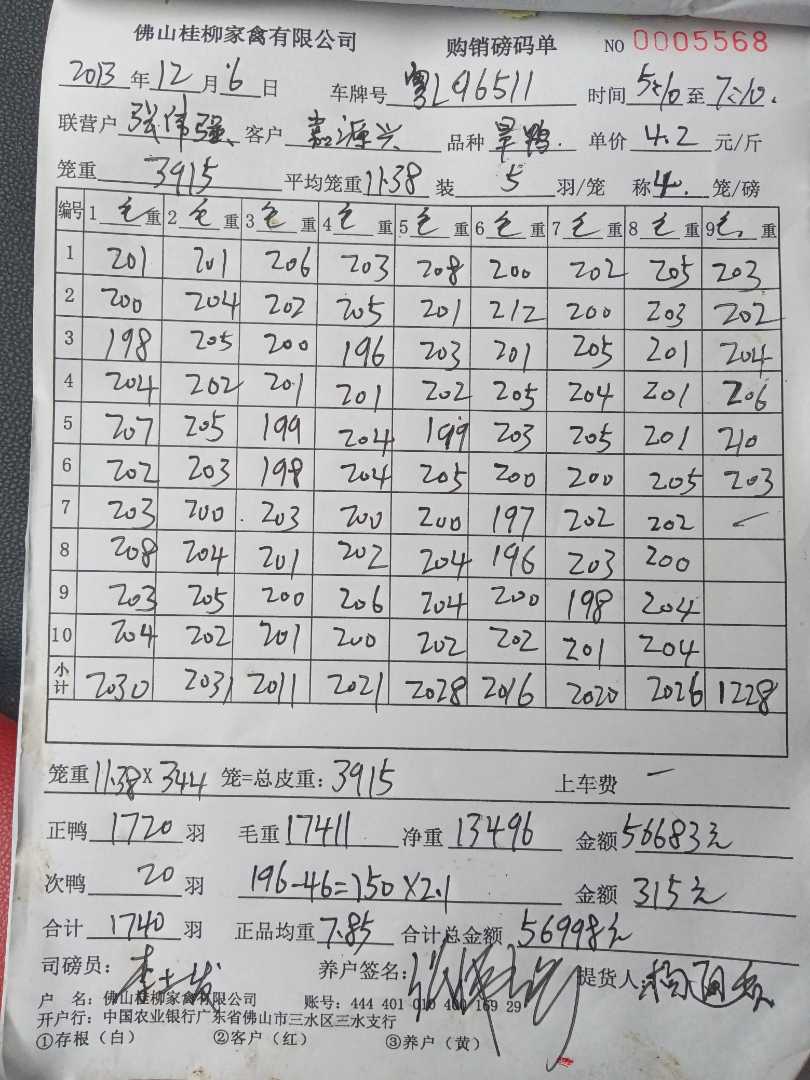 佛山桂柳家禽有限公司 购销磅码单 NO 0005568
2013年12月6日 车牌号 粤L96511 时间 5:10 至 7:10.
联营户 张伟强 客户 嘉源兴 品种 旱鸭. 单价 4.2 元/斤
笼重 3915 平均笼重 11.38 装 5 羽/笼 称 4. 笼/磅
编号 1 毛 重 2 毛 重 3 毛 重 4 毛 重 5 毛 重 6 毛 重 7 毛 重 8 毛 重 9 毛 重
1 201 201 206 203 208 200 202 205 203
2 200 204 202 205 201 212 200 203 202
3 198 205 200 196 203 201 205 201 204
4 204 202 201 201 202 205 204 201 206
5 207 205 199 204 199 203 205 201 210
6 202 203 198 204 205 200 200 205 203
7 203 200 203 200 200 197 202 202
8 208 204 201 202 204 196 203 200
9 203 205 200 206 204 200 198 204
10 204 202 201 200 202 202 201 204
小计 2030 2031 2011 2021 2028 2016 2020 2026 1228
笼重 11.38 X 344 笼=总皮重: 3915 上车费 一
正鸭 1720 羽 毛重 17411 净重 13496 金额 56683元
次鸭 20 羽 196-46=150X2.1 金额 315元
合计 1740 羽 正品均重 7.85 合计总金额 56998元
司磅员: 养户签名: 提货人:
户 名: 佛山桂柳家禽有限公司 账号: 444 401 010 400 169 29
开户行: 中国农业银行广东省佛山市三水区三水支行
①存根（白） ②客户（红） ③养户（黄）